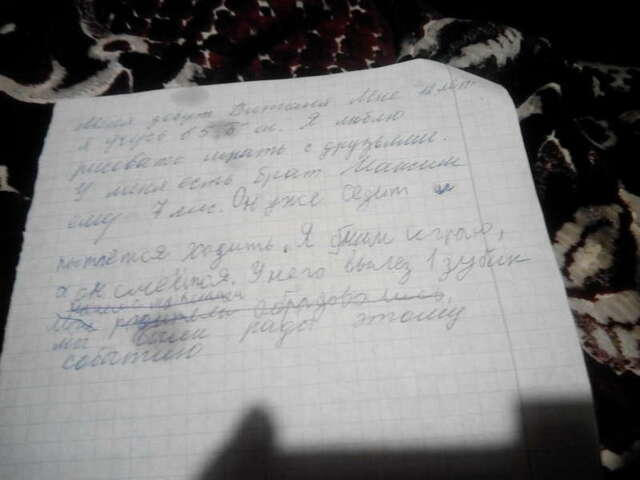 Меня зовут Виталя Мне лет
я учусь в 5 Б кл. Я люблю
рисовать играть с друзьями.
У меня есть брат Максим
ему 7 мес. Он уже седит и
пытается ходить. Я с ним играю,
а он смеётся. У него вылез 1 зубик
Мои родители обрадовались,
мы были рады этому
событию